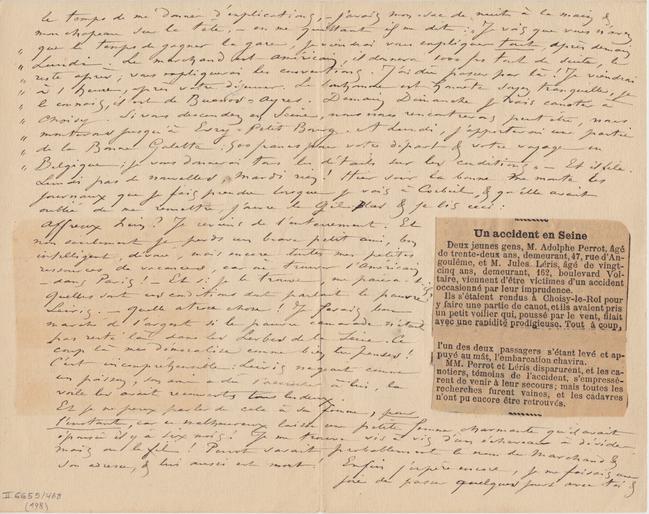 le temps de me donner d'explications, j'avais mon sac de nuit à la main &
mon chapeau sur la tête. — en me quittant il me dit: Je vois que vous n'avez
que le temps de gagner la gare, je viendrai vous expliquer tout, après demain
Lundi. Le marchand est américain, il donnera 1000 frs tout de suite, le
reste après; vous expliquerai les conventions. J'ai dû passer par là. Je viendrai
à 1 heure, après votre déjeuner. Le bonhomme est honnête soyez tranquille, je
le connais, il est de Buenos-Ayres. Demain Dimanche je vais canoter à
Choisy. Si vous descendez en Seine, nous nous rencontrerons peut être, nous
montrons jusqu'à Evry-Petit Bourg. A Lundi, j'apporterai une partie
de la Bonne Galette. pour votre départ & votre voyage en
Belgique; je vous donnerai tous les détails sur les conditions. — Et il file.
Lundi pas de nouvelles, mardi rien! Hier soir la bonne me monte les
journaux que je fais prendre lorsque je vais à Corbeil, & qu'elle avait
oublié de me remettre, j'ouvre le Gil Blas & je lis ceci:
Affreux hein? Je reviens de l'enterrement. Et
non seulement je perds un brave petit ami, bon
intelligent, dévoué, mais encore toutes mes petites
ressources de vacances, car où trouver l'Américain
dans Paris! Et si je le trouve,
quelles sont les conditions dont parlait le pauvre
Léris. — quelle atroce chose! Je faisais bon
marché de l'argent si le pauvre camarade n'était
pas resté là dans les herbes de la Seine. Ce
coup là me démoralise comme bien tu penses!
C'est incompréhensible Léris nageant comme
un poisson, son ami à lui, la
voile les aurait recouverts tous les deux.
Et je ne peux parler de cela à sa femme, pour
l'instant, car ce malheureux laisse une petite femme charmante qu'il avait
épousée il y a six mois! Je me trouve vis à vis d'un écheveau à dévider
mais où le fil! Perrot savait probablement le nom du marchand &
son adresse, & lui aussi est mort. Enfin j'espère encore, je me faisais une
joie de passer quelques jours avec toi &
Un accident en Seine
Deux jeunes gens, M. Adolphe Perrot, âgé
de trente-deux ans, demeurant, 47, rue d'An-
goulême, et M. Jules. Léris, âgé de vingt-
cinq ans, demeurant, 162, boulevard Vol-
taire, viennent d'être victimes d'un accident
occasionné par leur imprudence.
Ils s'étaient rendus à Choisy-le-Roi pour
y faire une partie de canot, et ils avaient pris
un petit voilier qui, poussé par le vent, filait
avec une rapidité prodigieuse. Tout à coup,
l'un des deux passagers s'étant levé et ap-
puyé au mât, l'embarcation chavira.
MM. Perrot et Léris disparurent, et les ca-
notiers, témoins de l'accident, s'empressè-
rent de venir à leur secours; mais toutes les
recherches furent vaines, et les cadavres
n'ont pu encore être retrouvés.
II 6655/468
(198)